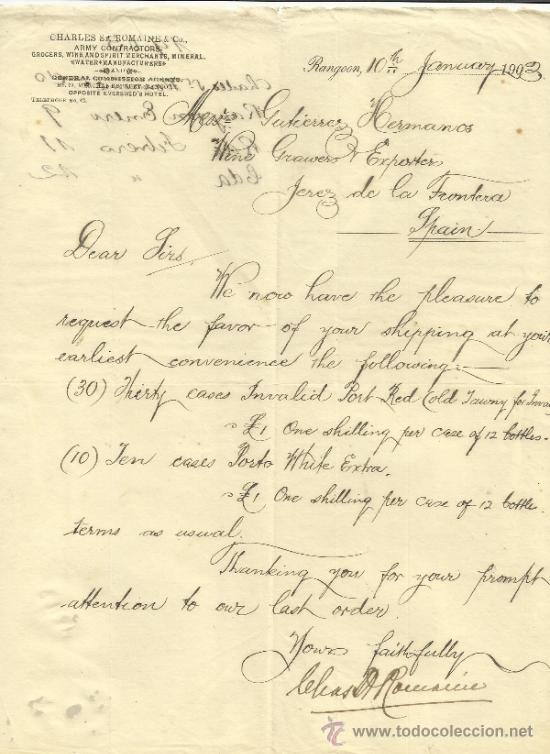 CHARLES St. ROMAINE & Co.,
ARMY CONTRACTORS,
GROCERS, WINE AND SPIRIT MERCHANTS, MINERAL
WATER MANUFACTURERS
AND
GENERAL COMMISSION AGENTS,
OPPOSITE EVERSHED'S HOTEL.
TELEPHONE No.
Rangoon, 10th January 1903
Messrs Gutierrez Hermanos
Wine Growers & Exporters
Jerez de la Frontera
Spain
Dear Sirs,
We now have the pleasure to
request the favor of your shipping at your
earliest convenience the following:—
(30) Thirty cases Invalid Port Red (Old Tawny for
£1 One shilling per case of 12 bottles.
(10) Ten cases Porto White Extra.
£1 One shilling per case of 12 bottle.
terms as usual.
Thanking you for your prompt
attention to our last order.
Yours faithfully
Chas Romaine
www.todocoleccion.net